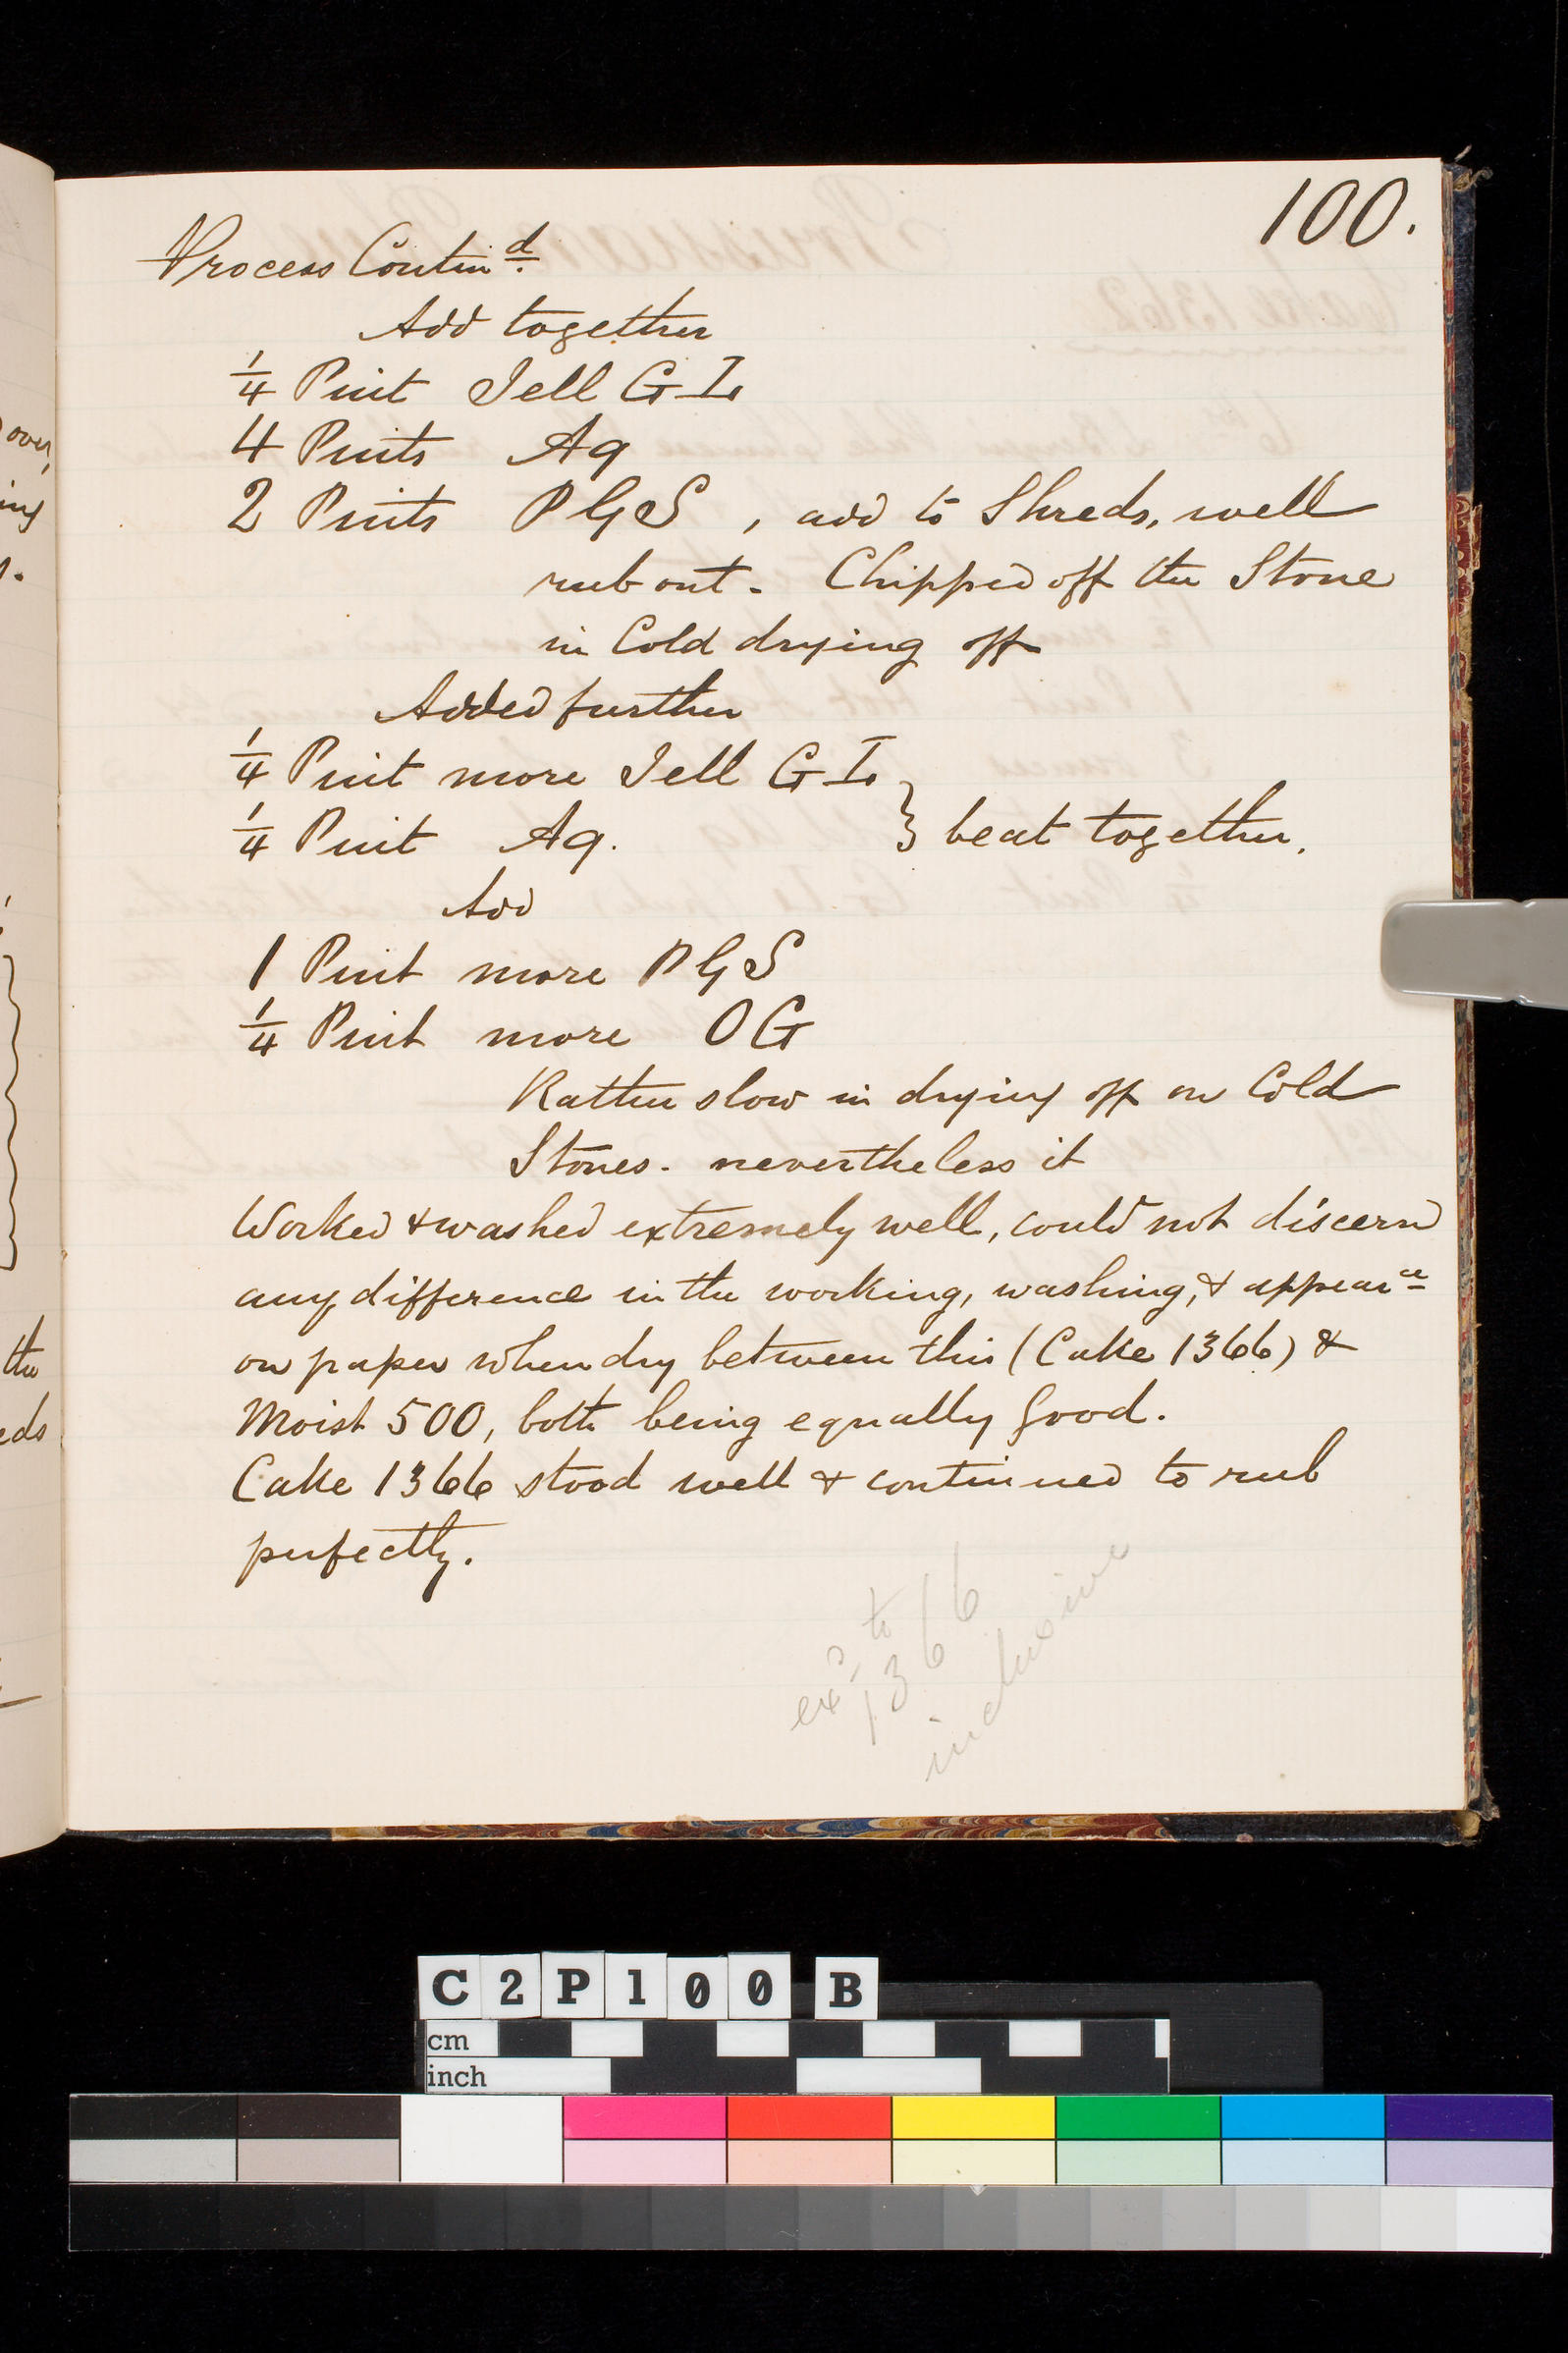 100.
Process Contin.d
Add together
1/4 Pint Jell GI.
4 Pints Aq
2 Pints PGS , add to Shreds, well
rub out. Chipped off the Stone
in Cold drying off
Added further
1/4 Pint more Jell GI.
1/4 Pint Aq. } beat together.
Add
1 Pint more PGS
1/4 Pint more OG
Rather slow in drying off on Cold
Stones. nevertheless it
Worked & washed extremely well, could not discern
any difference in the working, washing, & appearce
on paper when dry between this (Cake 1366) &
Moist 500, both being equally good.
Cake 1366 stood well & continued to rub
perfectly.
exd to
1366
inclusive
over,
ing
the
eds
C2P100 B
cm
inch